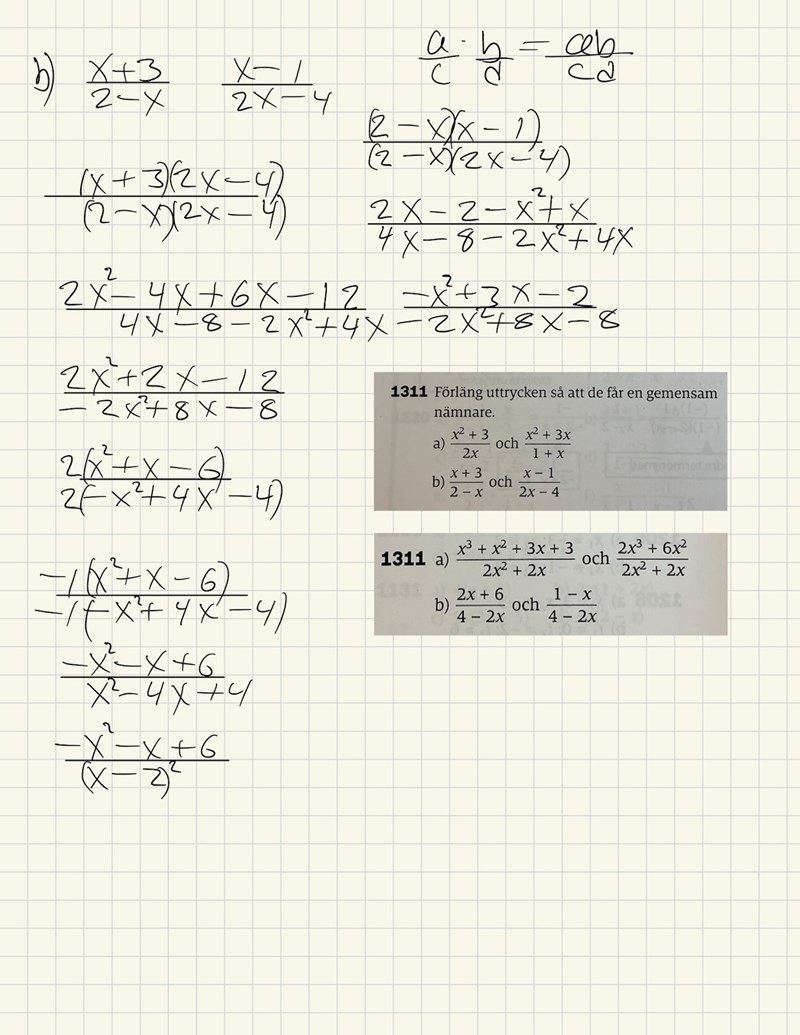 b) (x+3)/(2-x) (x-1)/(2x-4)
a/c · b/d = ab/cd
((x+3)(2x-4))/((2-x)(2x-4))
((2-x)(x-1))/((2-x)(2x-4))
(2x-2-x²+x)/(4x-8-2x²+4x)
(2x²-4x+6x-12)/(4x-8-2x²+4x)
(-x²+3x-2)/(-2x²+8x-8)
(2x²+2x-12)/(-2x²+8x-8)
2(x²+x-6)/2(-x²+4x-4)
-1(x²+x-6)/-1(-x²+4x-4)
(-x²-x+6)/(x²-4x+4)
(-x²-x+6)/(x-2)²
1311 Förläng uttrycken så att de får en gemensam
nämnare.
a) (x² + 3)/(2x) och (x² + 3x)/(1 + x)
b) (x + 3)/(2 - x) och (x - 1)/(2x - 4)
1311 a) (x³ + x² + 3x + 3)/(2x² + 2x) och (2x³ + 6x²)/(2x² + 2x)
b) (2x + 6)/(4 - 2x) och (1 - x)/(4 - 2x)